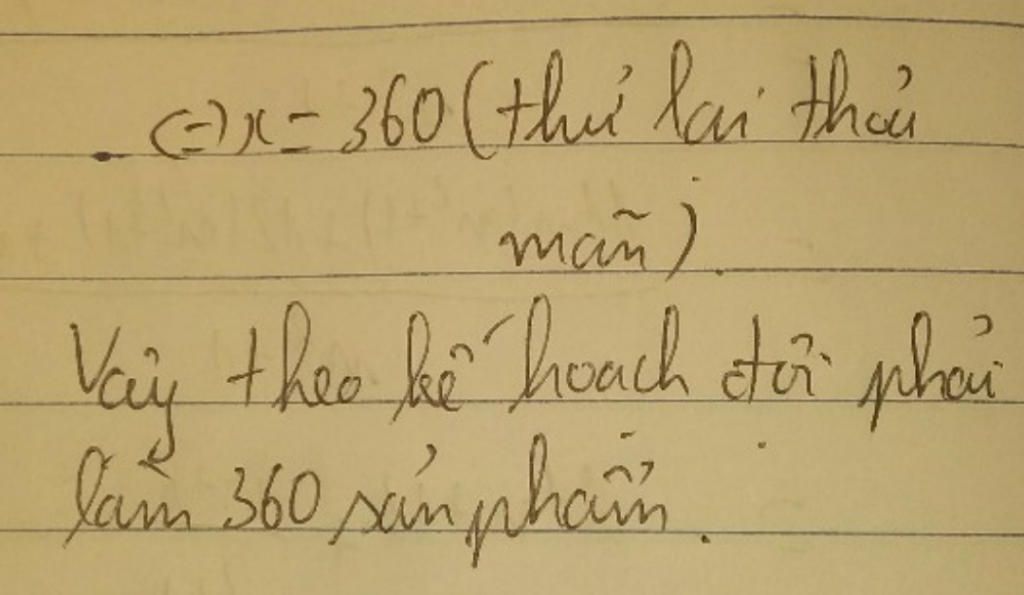 <=> x = 360 (thử lại thỏa
mãn).
Vậy theo kế hoạch đội phải
làm 360 sản phẩm.